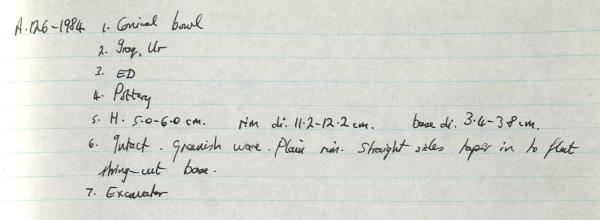 A.126-1984 1. Conical bowl
2. Iraq, Ur
3. ED
4. Pottery
5. H. 5.0-6.0 cm. rim di. 11.2-12.2 cm. base di. 3.4-3.8 cm.
6. Intact. Greenish ware. Plain rim. Straight sides taper in to flat
string-cut base.
7. Excavator